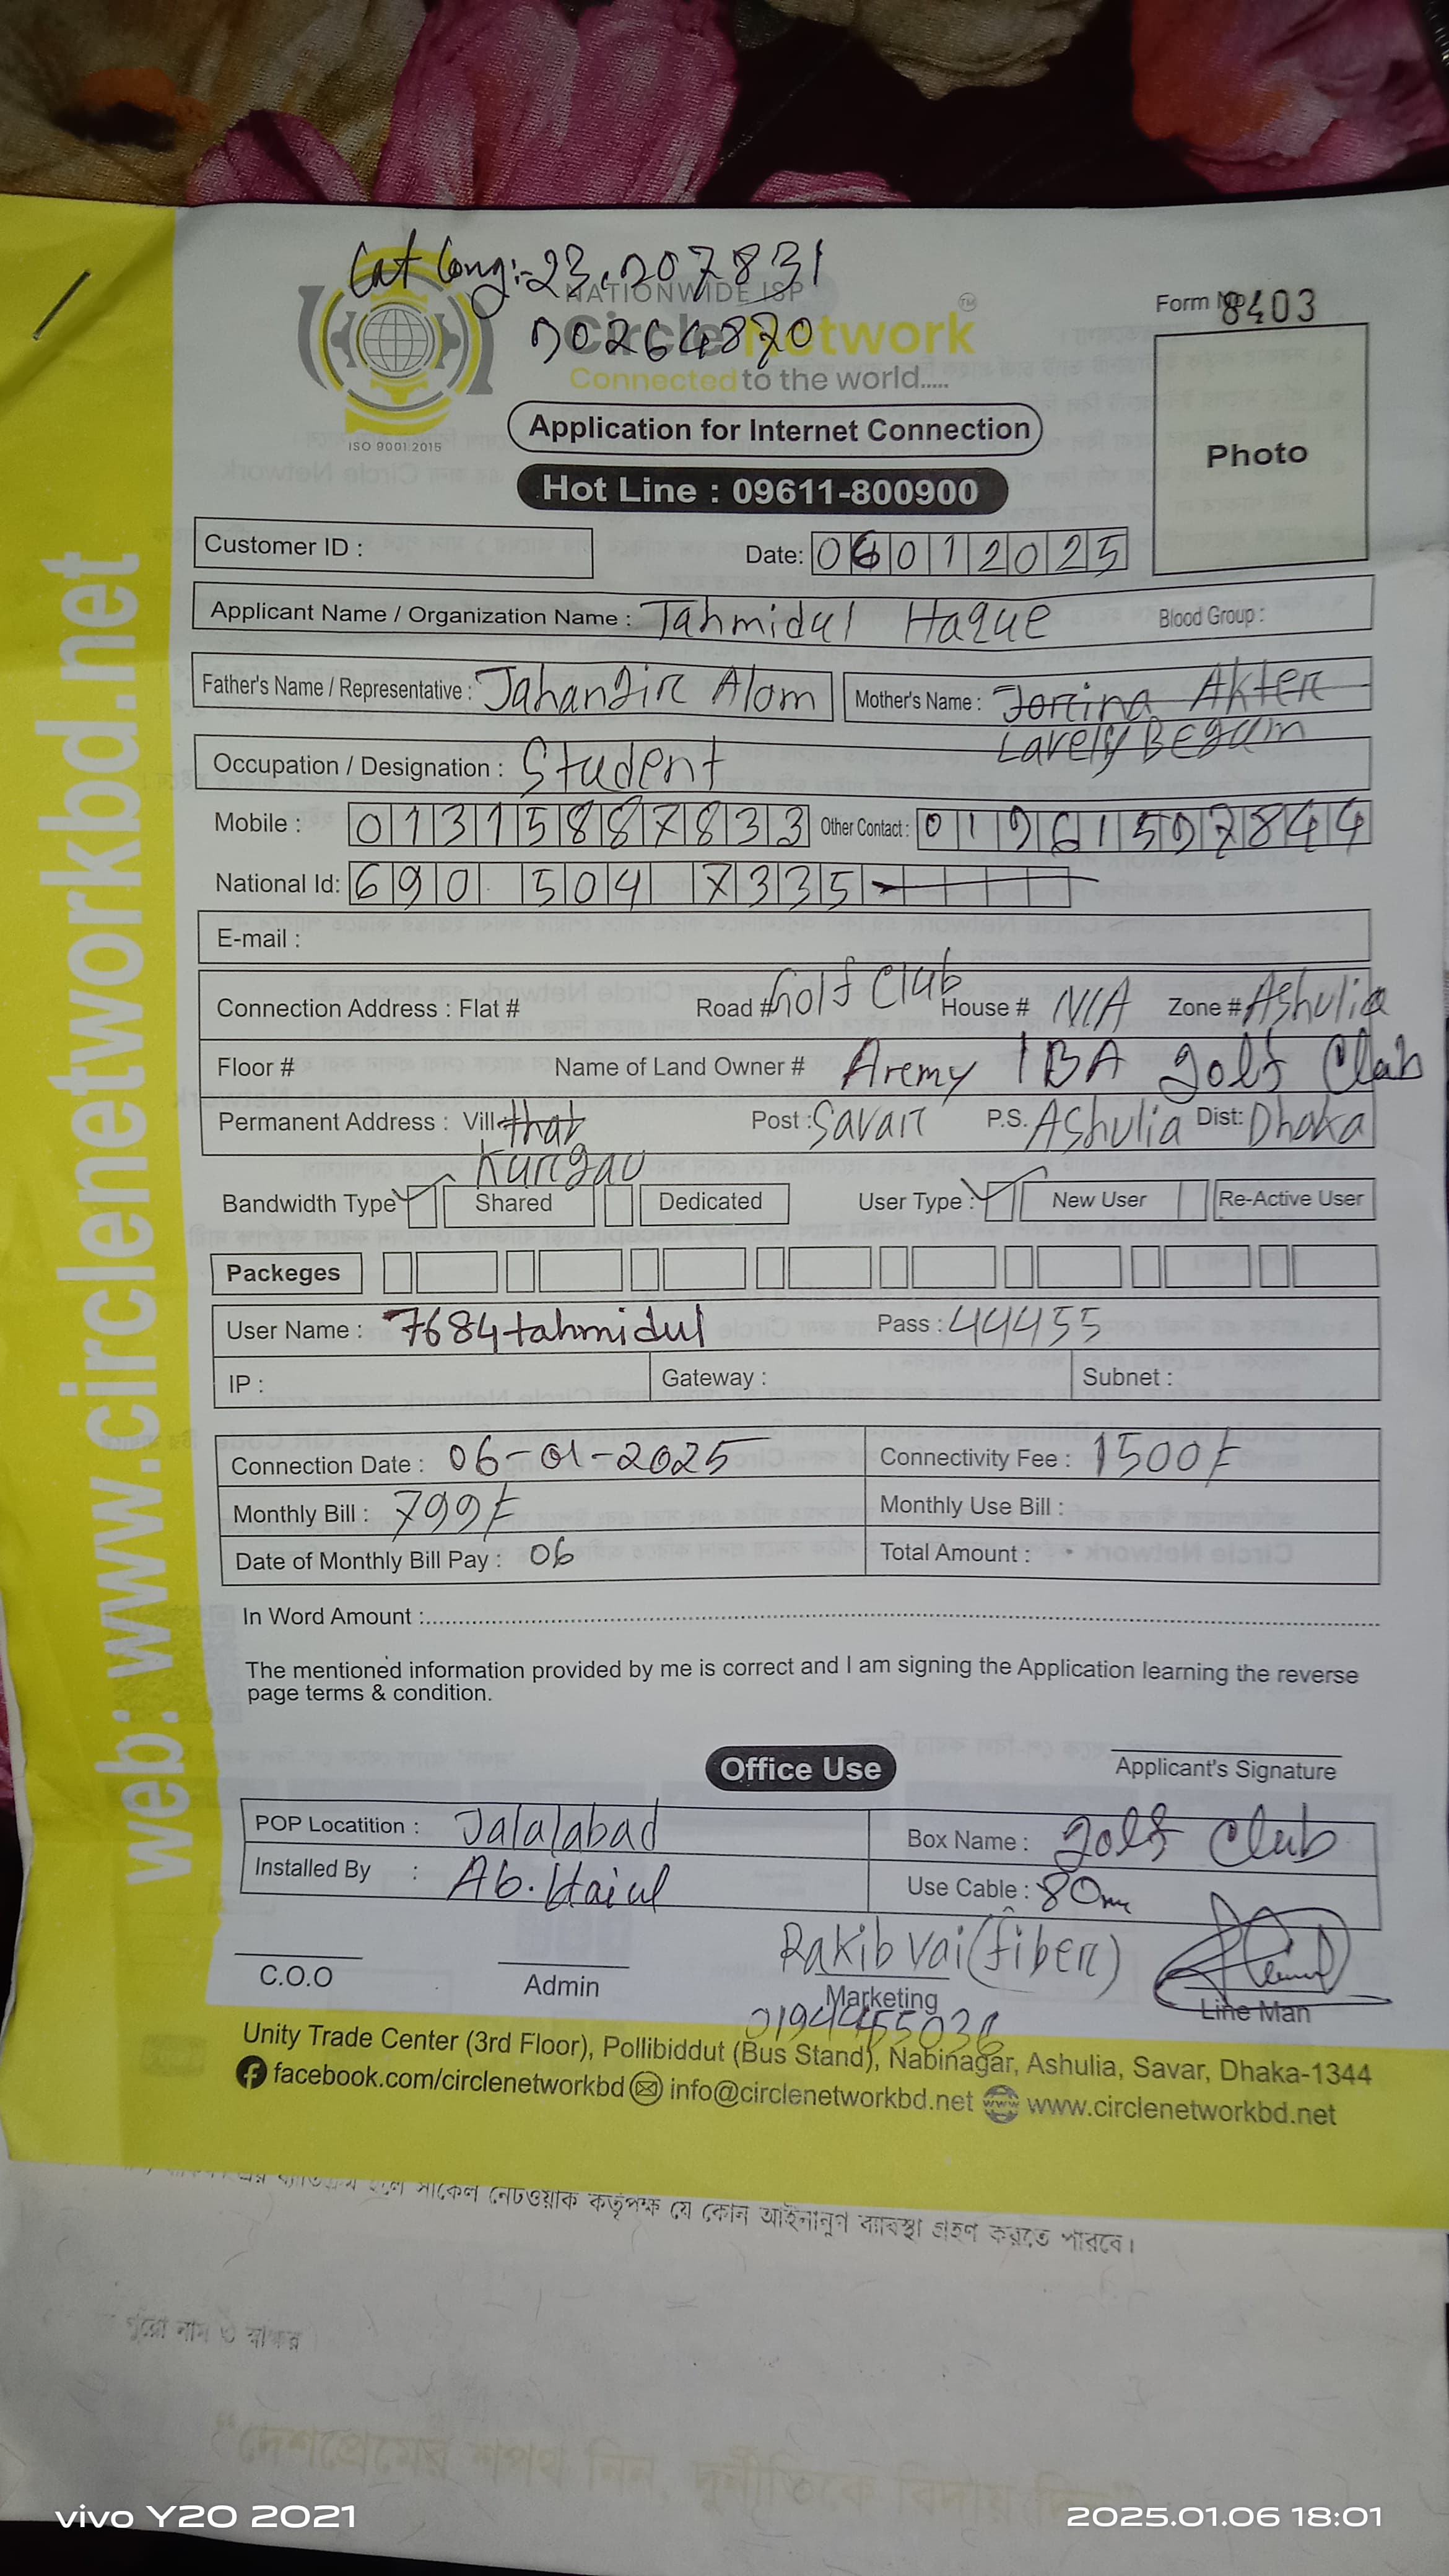 Lat Long:-23.207831
90264870
NATIONWIDE ISP
Circle Network
TM
Connected to the world.....
ISO 9001:2015
Form No 8403
Photo
Application for Internet Connection
Hot Line : 09611-800900
Customer ID :
Date: 06012025
Applicant Name / Organization Name : Tahmidul Haque Blood Group :
Father's Name / Representative : Jahangir Alom Mother's Name : Jorina Akter
Lavely Begum
Occupation / Designation : Student
Mobile : 01315887833 Other Contact : 01961597844
National Id: 690 504 7335
E-mail :
Connection Address : Flat # Road # Golf Club House # N/A Zone # Ashulia
Floor # Name of Land Owner # Aremy IBA golf Club
Permanent Address : Vill that Post : Savar P.S. Ashulia Dist: Dhaka
Kurgau
Bandwidth Type Shared Dedicated User Type : New User Re-Active User
Packeges
User Name : 7684tahmidul Pass : 44455
IP : Gateway : Subnet :
Connection Date : 06-01-2025 Connectivity Fee : 1500/-
Monthly Bill : 799/- Monthly Use Bill :
Date of Monthly Bill Pay : 06 Total Amount :
In Word Amount :
The mentioned information provided by me is correct and I am signing the Application learning the reverse
page terms & condition.
Applicant's Signature
Office Use
POP Locatition : Jalalabad Box Name : golf Club
Installed By : Ab. Haiul Use Cable : 80m
Rakib vai (fiber)
C.O.O Admin Marketing Line Man
Unity Trade Center (3rd Floor), Pollibiddut (Bus Stand), Nabinagar, Ashulia, Savar, Dhaka-1344
facebook.com/circlenetworkbd info@circlenetworkbd.net www.circlenetworkbd.net
web: www.circlenetworkbd.net
সার্কেল নেটওয়ার্ক কর্তৃপক্ষ যে কোন আইনানুগ ব্যাবস্থা গ্রহণ করতে পারবে।
পুরো নাম ও স্বাক্ষর
"দেশপ্রেমের শপথ নিন, দুর্নীতিকে বিদায় দিন"
vivo Y20 2021
2025.01.06 18:01